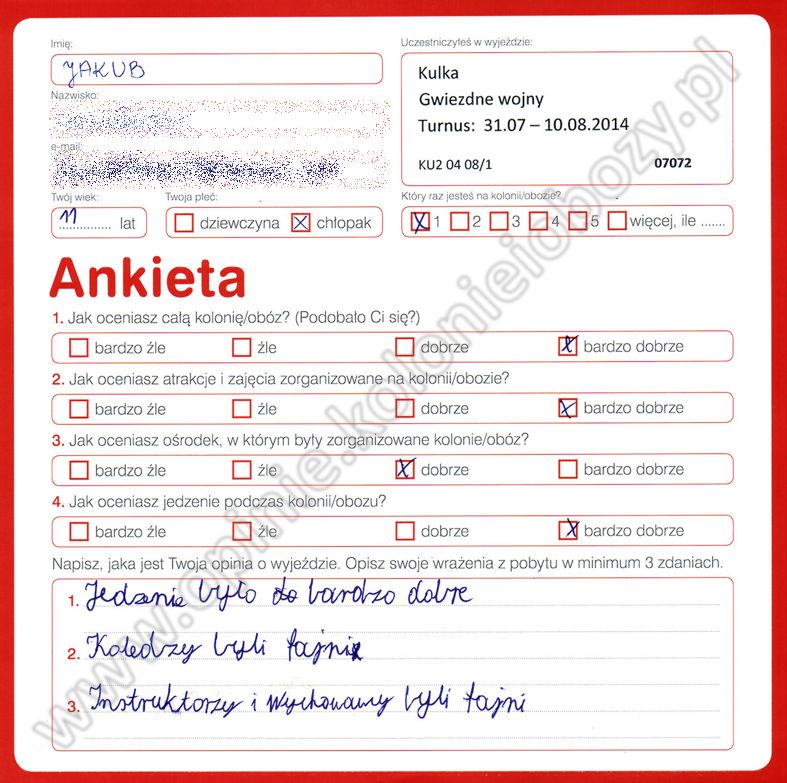 Imię:
JAKUB
Nazwisko:
e-mail:
Twój wiek:
11 lat
Twoja płeć:
dziewczyna chłopak
Uczestniczyłeś w wyjeździe:
Kulka
Gwiezdne wojny
Turnus: 31.07 – 10.08.2014
KU2 04 08/1 07072
Który raz jesteś na kolonii/obozie?
1 2 3 4 5 więcej, ile .......
Ankieta
1. Jak oceniasz całą kolonię/obóz? (Podobało Ci się?)
bardzo źle źle dobrze bardzo dobrze
2. Jak oceniasz atrakcje i zajęcia zorganizowane na kolonii/obozie?
bardzo źle źle dobrze bardzo dobrze
3. Jak oceniasz ośrodek, w którym były zorganizowane kolonie/obóz?
bardzo źle źle dobrze bardzo dobrze
4. Jak oceniasz jedzenie podczas kolonii/obozu?
bardzo źle źle dobrze bardzo dobrze
Napisz, jaka jest Twoja opinia o wyjeździe. Opisz swoje wrażenia z pobytu w minimum 3 zdaniach.
1. Jedzenie było bardzo dobre
2. Koledzy byli fajni
3. Instruktorzy i wychowawy byli fajni
www.opinie.kolonieiobozy.pl